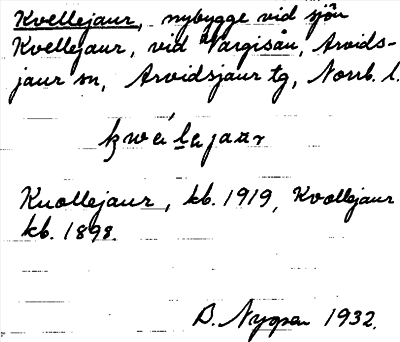 Kvellejaur, nybygge vid sjön
Kvellejaur, vid Vargisån, Arvids-
jaur sn, Arvidsjaur tg, Norrb. l.
Knollejaur, kb. 1919, Kvollejaur
kb. 1898.
B. Nygren 1932.